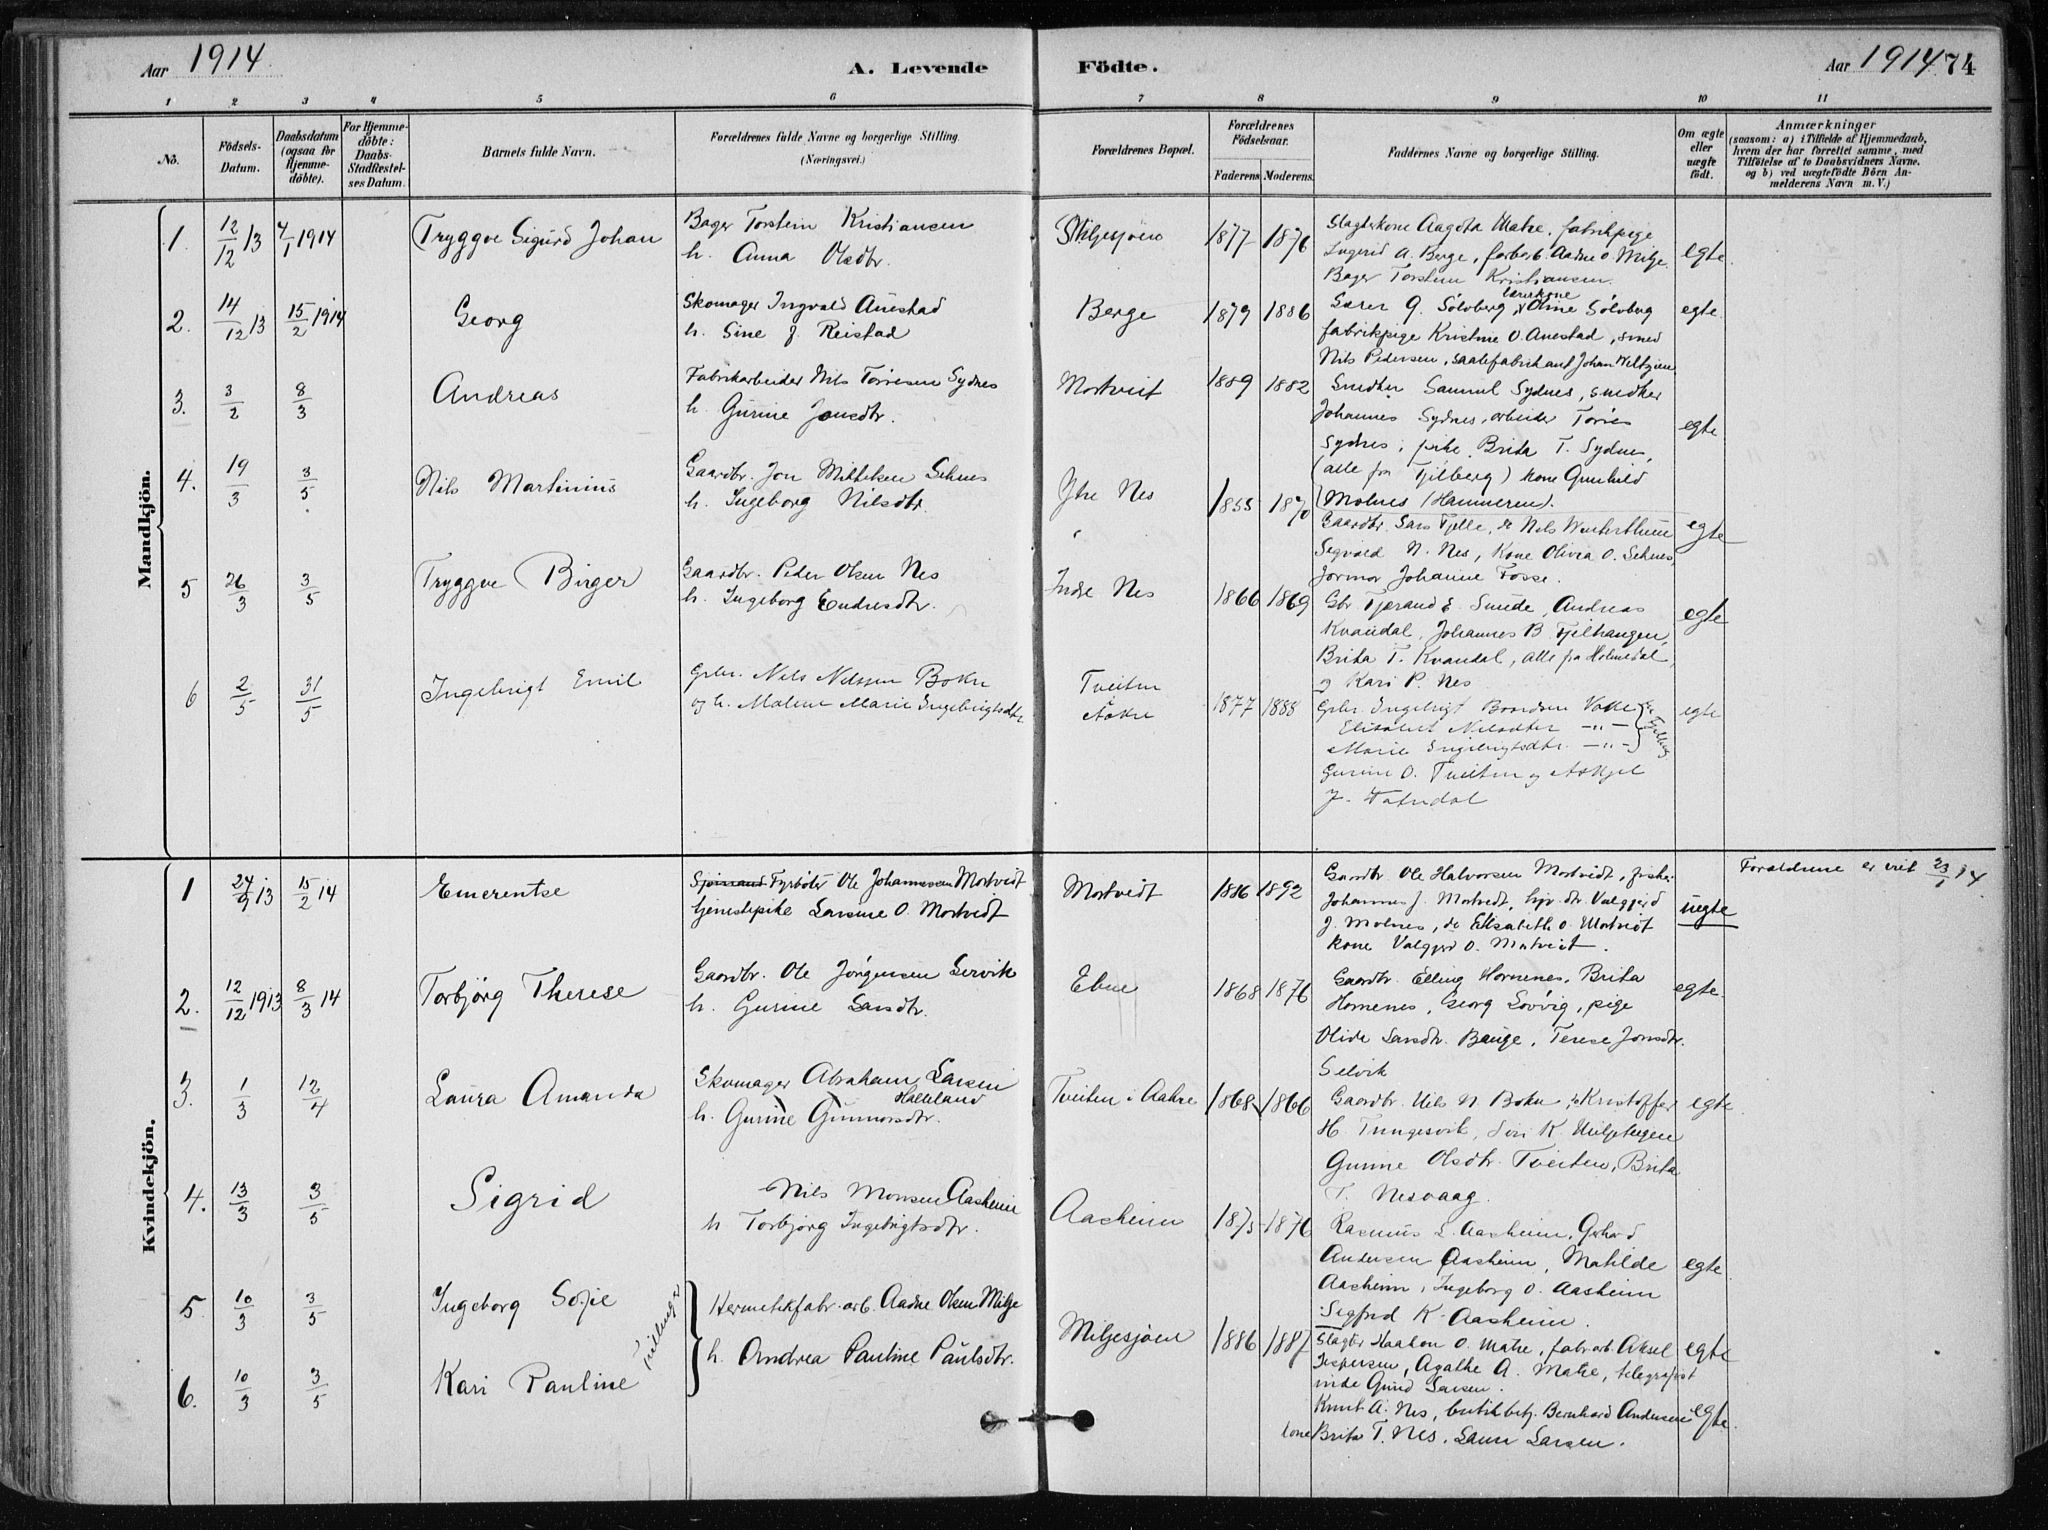 Aar 1914.
A. Levende Födte.
Aar 1914 74
1 2 3 4 5 6 7 8 9 10 11
No.
Födsels-Datum.
Daabsdatum (ogsaa for Hjemme-döbte).
For Hjemme-döbte: Daabs-Stadfæstel-ses Datum.
Barnets fulde Navn.
Forældrenes fulde Navne og borgerlige Stilling.
(Næringsvei.)
Forældrenes Bopæl.
Forældrenes Födselsaar.
Faderens. Moderens.
Faddernes Navne og borgerlige Stilling.
Om ægte eller uægte födt.
Anmærkninger
(saasom: a) i Tilfælde af Hjemmedaab,
hvem der har forrettet samme, med
Tilföielse af to Daabsvidners Navne.
og b) ved uægtefödte Börn An-
melderens Navn m. V.)
Mandkjön.
1. 12/12 13 4/1 1914 Tryggve Sigurd Johan
Bager Torstein Kristiansen
h. Anna Olsdtr.
1877 1876
Slagterkone Aagota Matre, fabrikpige
Ingerid A. Berge, fabarb. Aadne O. Milje
Bager Torstein Kristiansen.
egte
2. 14/12 13 15/2 1914 Georg
Skomager Ingvald Anestad
h. Sine J. Reistad
Berge 1879 1886
Lærer G. Sölvberg, lærerkone Oline Sölvberg
fabrikpige Kristine O. Anestad, smed
Nils Pedersen, saalefabrikant Johan Weltzien
egte
3. 3/2 8/3 Andreas
Fabrikarbeider Nils Torresen Sydnes
h. Gurine Jonsdtr.
Mortveit 1889 1882
Snedker Samuel Sydnes, snedker
Johannes Sydnes, arbeider Torres
Sydnes, pike Brita T. Sydnes,
(alle fra Fjelberg) kone Gunhild
Molnes (Hammeren).
egte
4. 19/3 3/5 Nils Martinius
Gaardbr. Jon Mikkelsen Sehus
h. Ingeborg Nilsdtr.
Ytre Nes 1855 1870
Gaardbr. Lars Fjelle, do Nils
Sigvald N. Nes, Kone Olivia O. Sehus
Jormor Johanne Fosse.
egte
5 26/3 3/5 Tryggve Birger
Gaardbr. Peder Olsen Nes
h. Ingeborg Endresdtr.
Indre Nes 1866 1869
Gbr Tjerand E. Smede, Andreas
Kvandal, Johannes B. Fjelhaugen,
Brita T. Kvandal, alle fra Holmedal,
og Kari P. Nes
egte
6 2/5 31/5 Ingebrigt Emil
Grbr. Nils Nilssen Bokn
og h. Malene Marie Ingebrigtsdtr
Tveiten
Aakre
1877 1888
Grbr. Ingebrigt Baardsen
Elisabet Nilsdtter — „ —
Marie Ingebrigtsdtr. — „ —
Gurine O. Tveiten og Askjel
J. Vatndal
egte
Kvindekjön.
1 24/9 13 15/2 14 Emerentse
Fyrböter Ole Johannessen Mortvedt
tjenestepike Larsine O. Mortvedt
Mortvedt 1886 1892
Gaardbr. Ole Halvorsen Mortvedt, fisker
Johannes J. Mortvedt, hjv. dtr. Valgjerd
J. Molnes, do Elisabeth O. Mortvedt
kone Valgjerd O. Mortveit.
uegte
Forældrene er viet 23/1 14
2. 12/12 1913 8/3 14 Torbjörg Therese
Gaardbr. Ole Jörgensen Servik
h. Gurine Larsdtr.
Ebne 1868 1876
Gaardbr. Elling Hornenes, Brita
Hornenes, Georg Lovvig, pige
Olida Larsdtr. Bauge, Terese Jonsdtr.
Selvik
egte.
3. 1/3 12/4 Laura Amanda
Skomager Abraham Larsen
Halleland
h. Gurine Gunnarsdtr.
Tveiten i Aakre 1868 1866
Gaardbr. Nils N. Bokn, do Kristoffer
H. Tungesvik, Siri K. Miljeteigen
Gurine Olsdtr. Tveiten, Brita
T. Nesvaag.
egte
4. 13/3 3/5 Sigrid
Nils Monsen Aasheim
h Torbjörg Ingebrigtsdtr.
Aasheim 1875 1876
Rasmus L. Aasheim, Gerhard
Andersen Aasheim, Matilde
Aasheim, Ingeborg O. Aasheim
Sigfrid K. Aasheim.
egte
5 10/3 3/5 Ingeborg Sofie
tvillinger
Hermetikfabr. arb. Aadne Olsen Milje
h. Andrea Pauline Paulsdtr.
Miljesjöen 1886 1887
Slagter Haakon O. Matre, fabr arb. Aksel
Jespersen, Agathe A. Matre, telegrafist
inde Gurid Larsen.
egte
6. 10/3 3/5 Kari Pauline
Knut A. Nes, butikbetj. Bernhard Andersen
kone Brita T. Nes, Laura Larsen.
egte